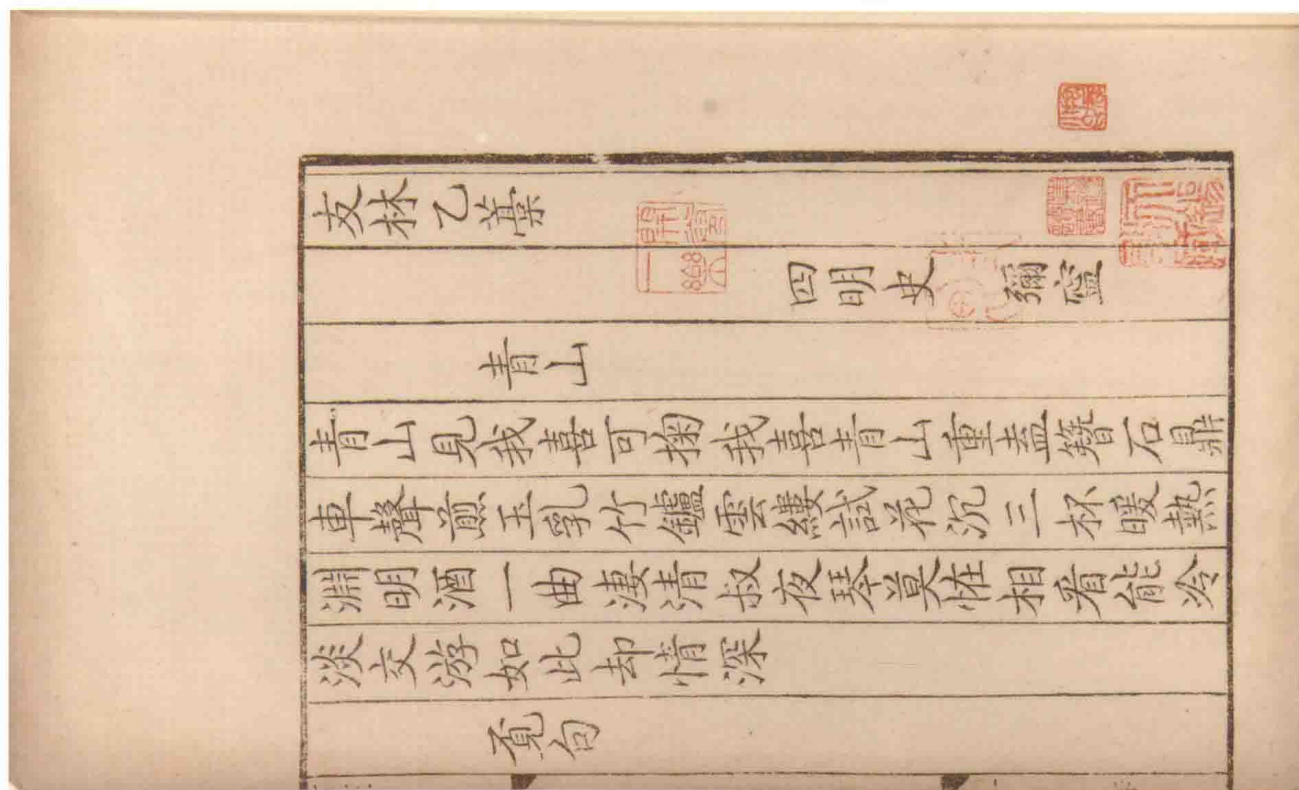 友林乙藁
四明史彌寍
青山
青山見我喜可掬我喜青山重盍簪石鼎
車聲煎玉乳竹鑪雲縷試花沉三杯暖熱
淵明酒一曲淒清叔夜琴莫怪相看能冷
淡交游如此却情深
覔句